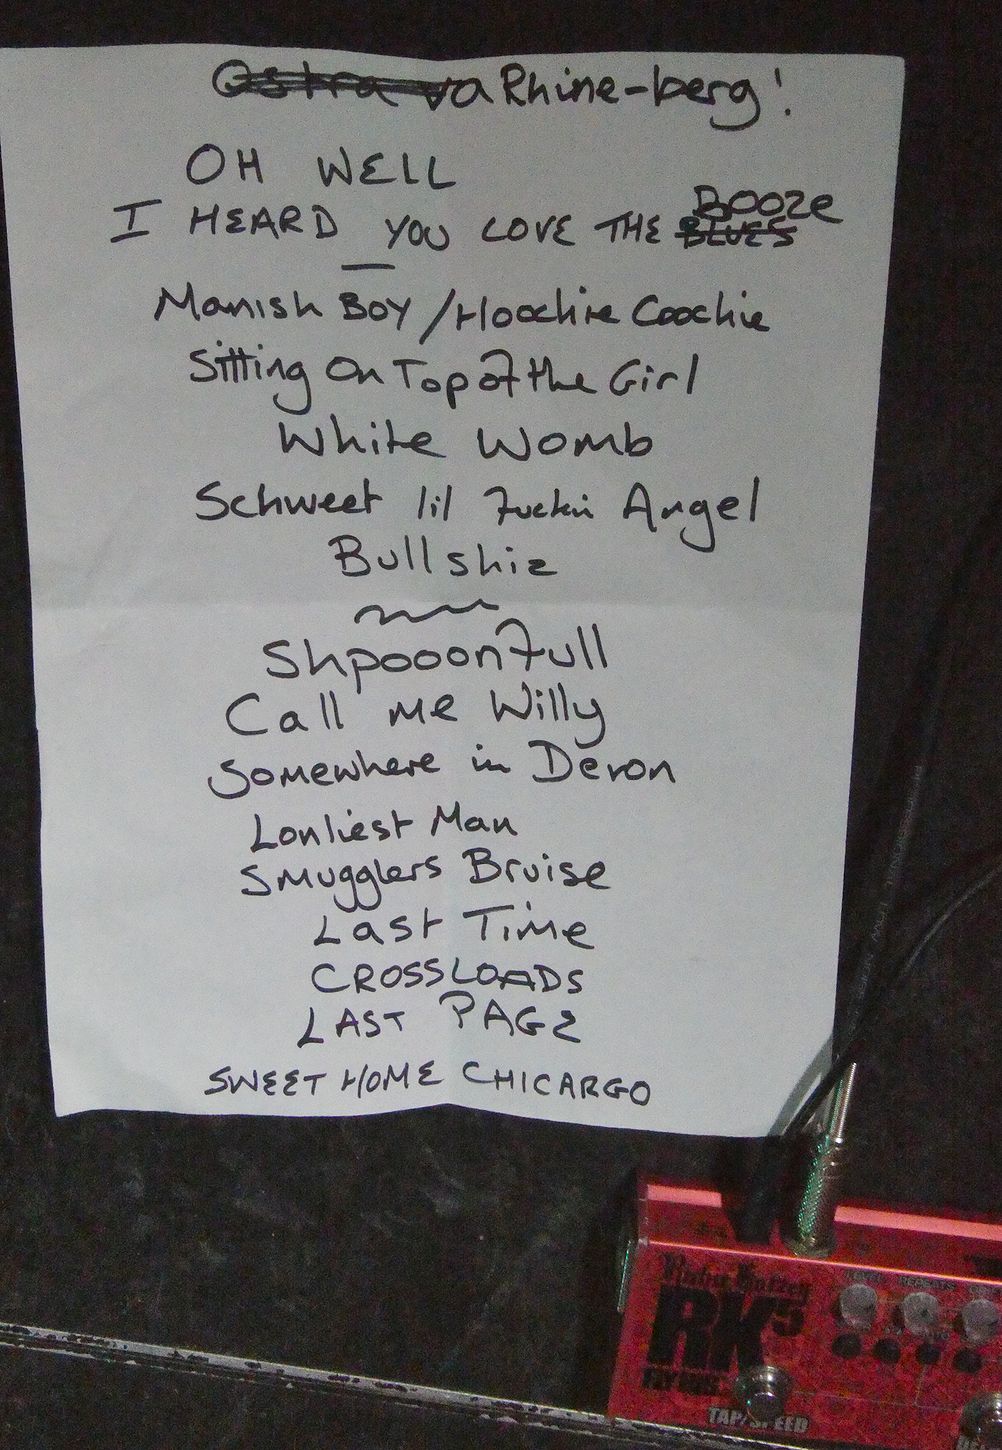 Ostrava Rhine-berg!
OH WELL
BOOZE
I HEARD YOU LOVE THE BLUES
Manish Boy / Hoochie Coochie
Sitting On Top of the Girl
White Womb
Schweet lil fuckin Angel
Bullshiz
Shpooonfull
Call me Willy
Somewhere in Devon
Lonliest Man
Smugglers Bruise
Last Time
CROSSLOADS
LAST PAGE
SWEET HOME CHICARGO
RK5
TAP/SPEED